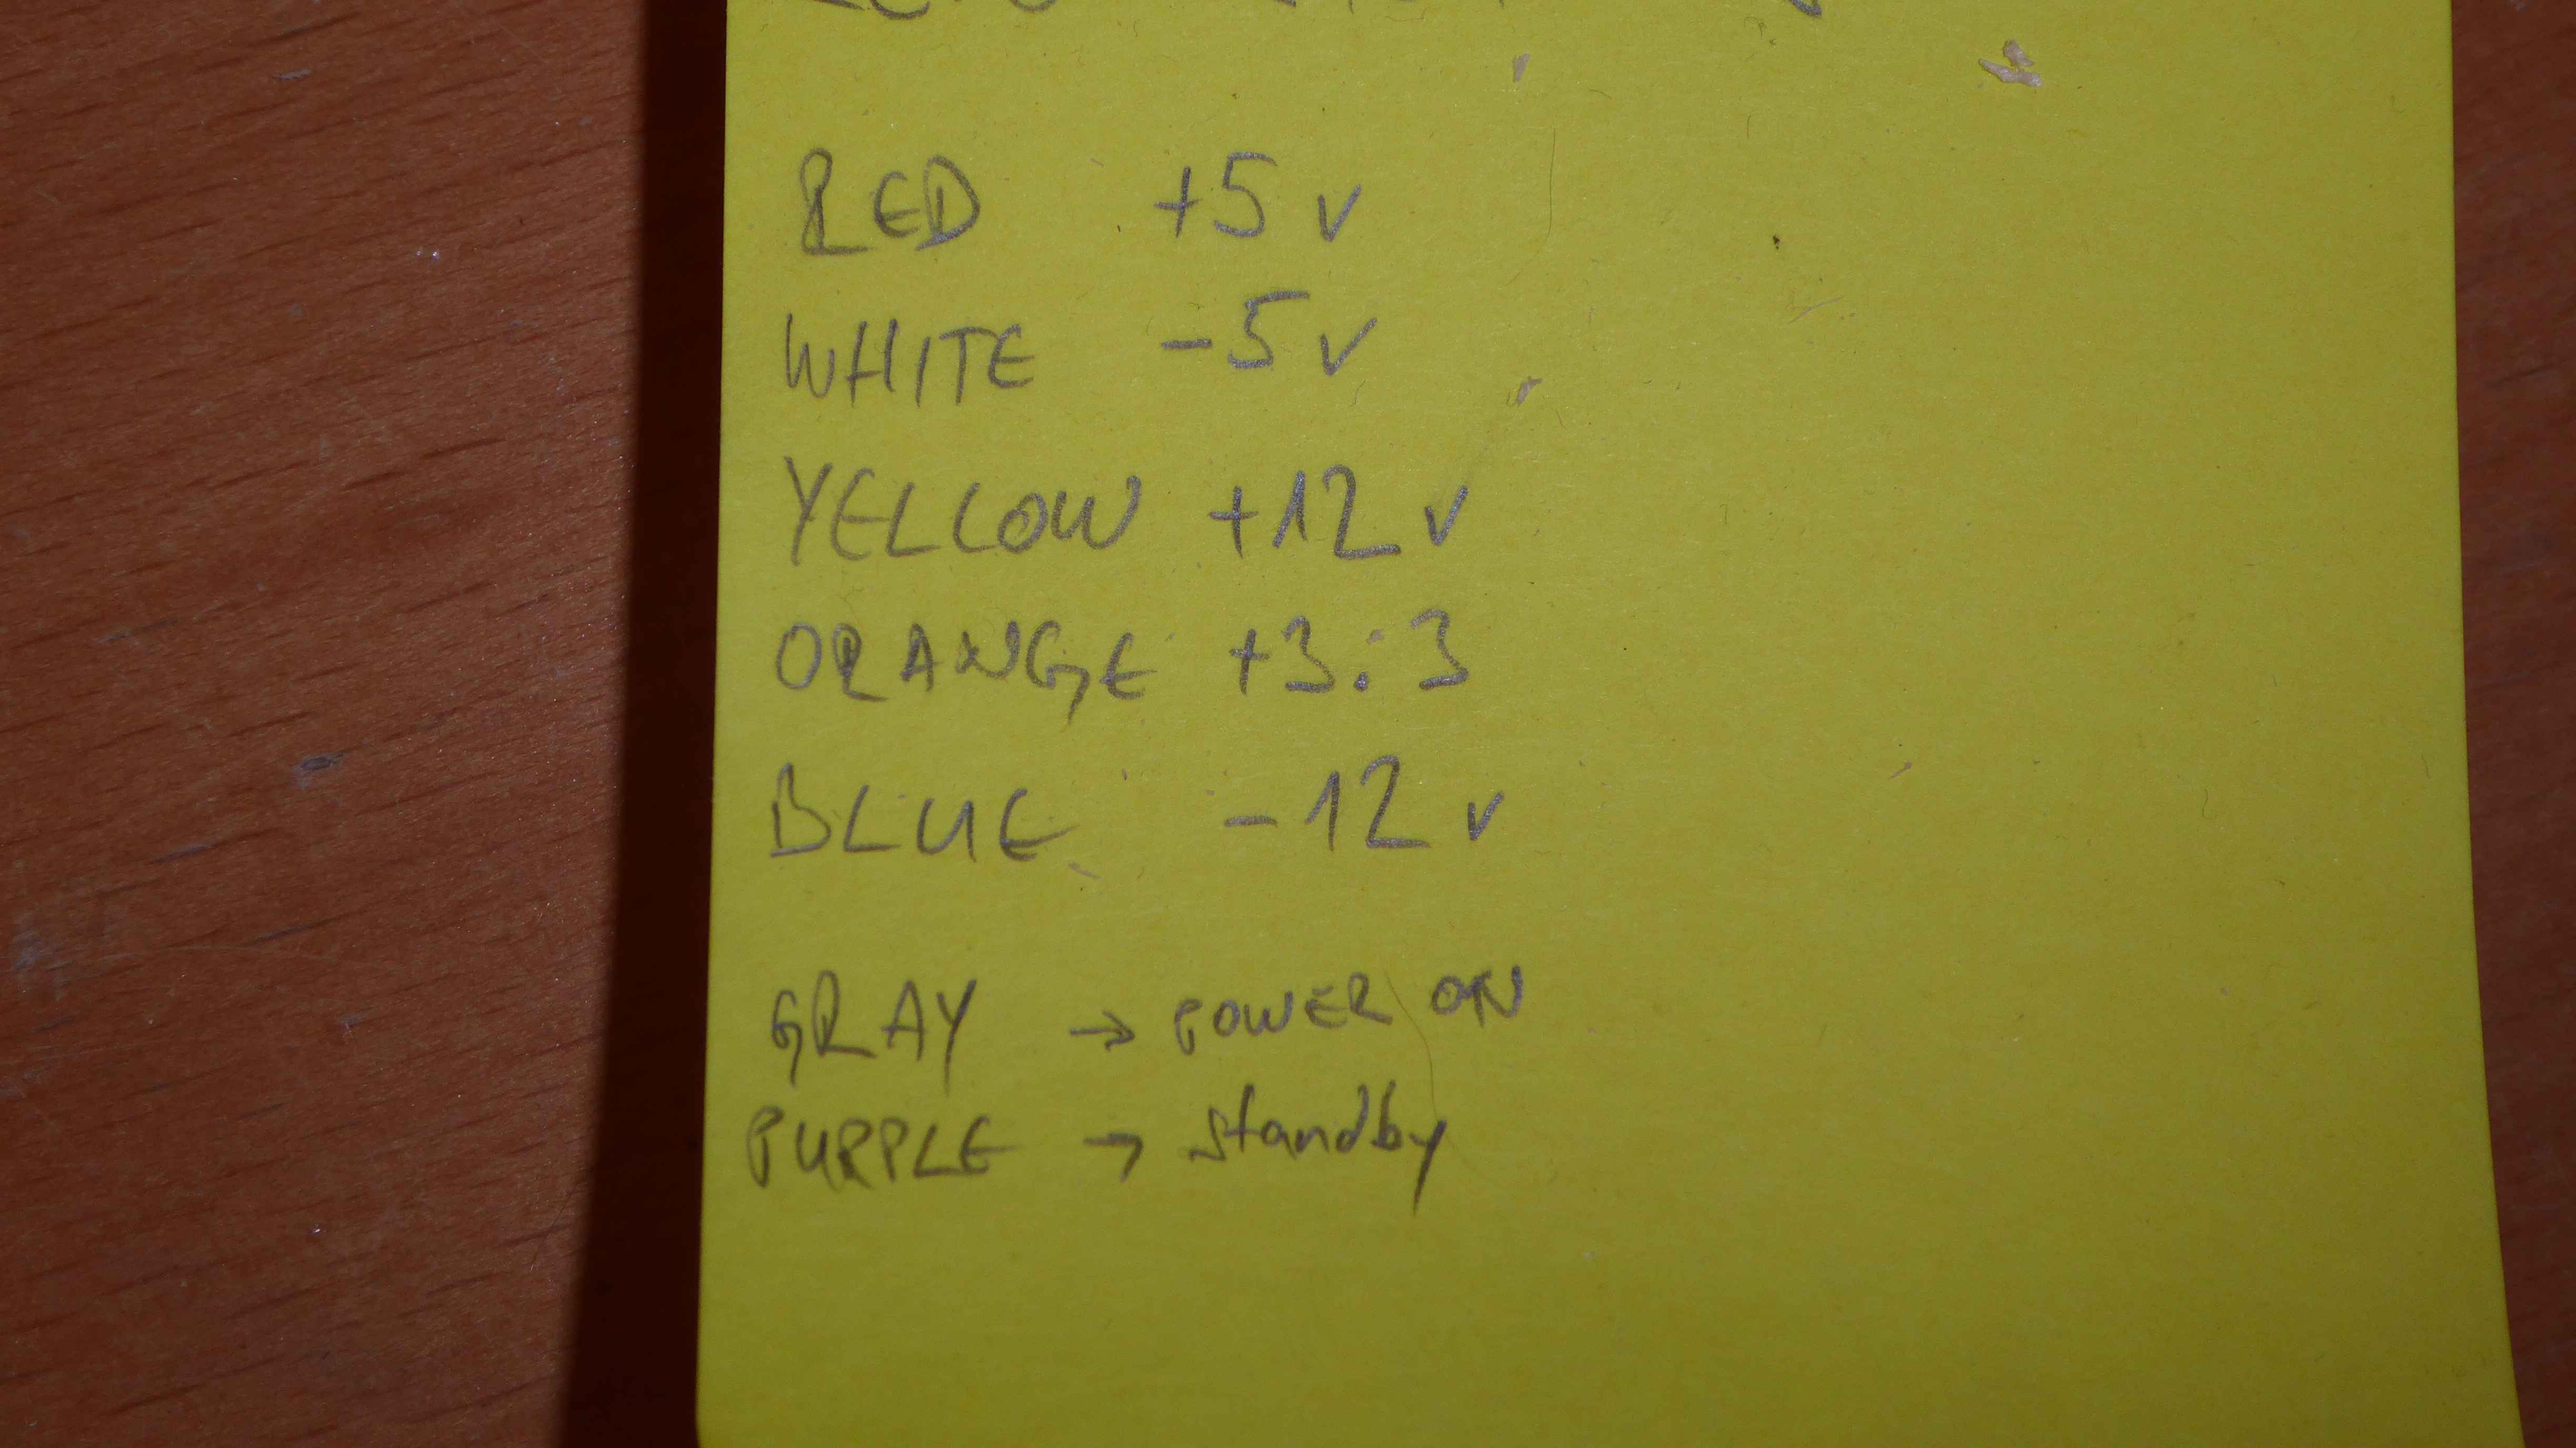 RED +5 v
WHITE -5 v
YELLOW +12 v
ORANGE +3.3
BLUE -12 v
GRAY → POWER ON
PURPLE → standby